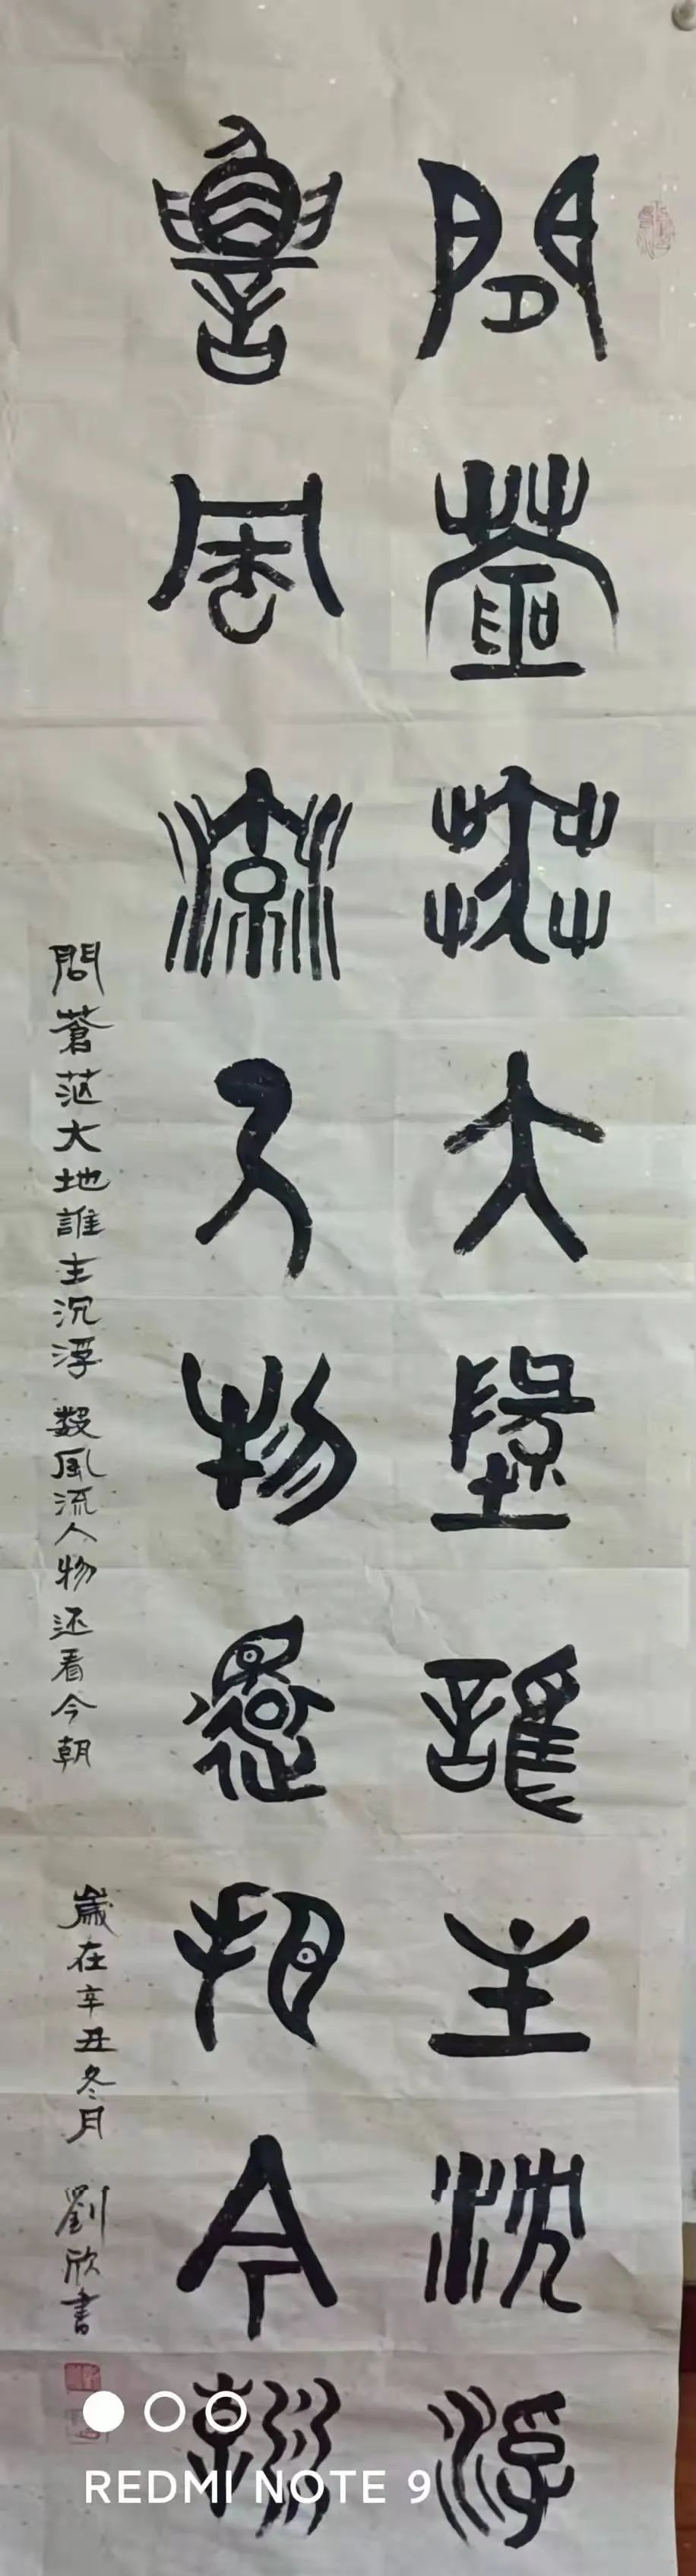 問蒼茫大地誰主沉浮
數風流人物還看今朝
問蒼茫大地誰主沉浮 数風流人物还看今朝
歲在辛丑冬月 劉欣書
REDMI NOTE 9